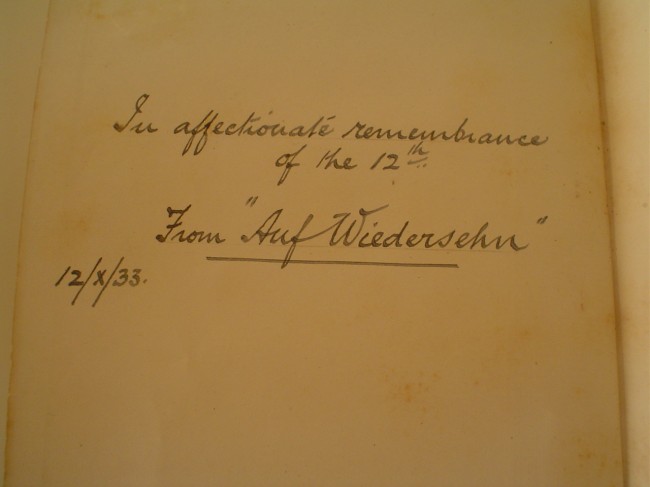 In affectionate remembrance
of the 12th
From "Auf Wiedersehn"
12/X/33.